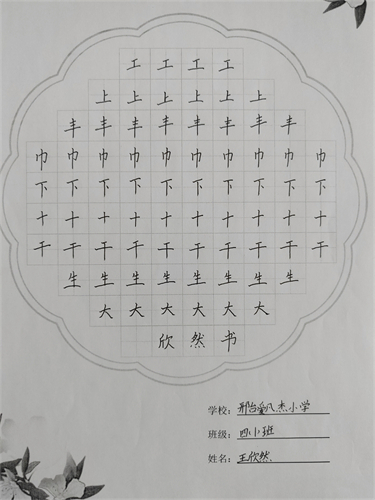 工工工工
上上上上上上
丰丰丰丰丰丰丰丰
巾巾巾巾巾巾巾巾巾巾
下下下下下下下下下下
十十十十十十十十十十
干干干干干干干干干干
生生生生生生生生
大大大大大大
欣然书
学校: 邢台 八杰小学
班级: 四小班
姓名: 王欣然